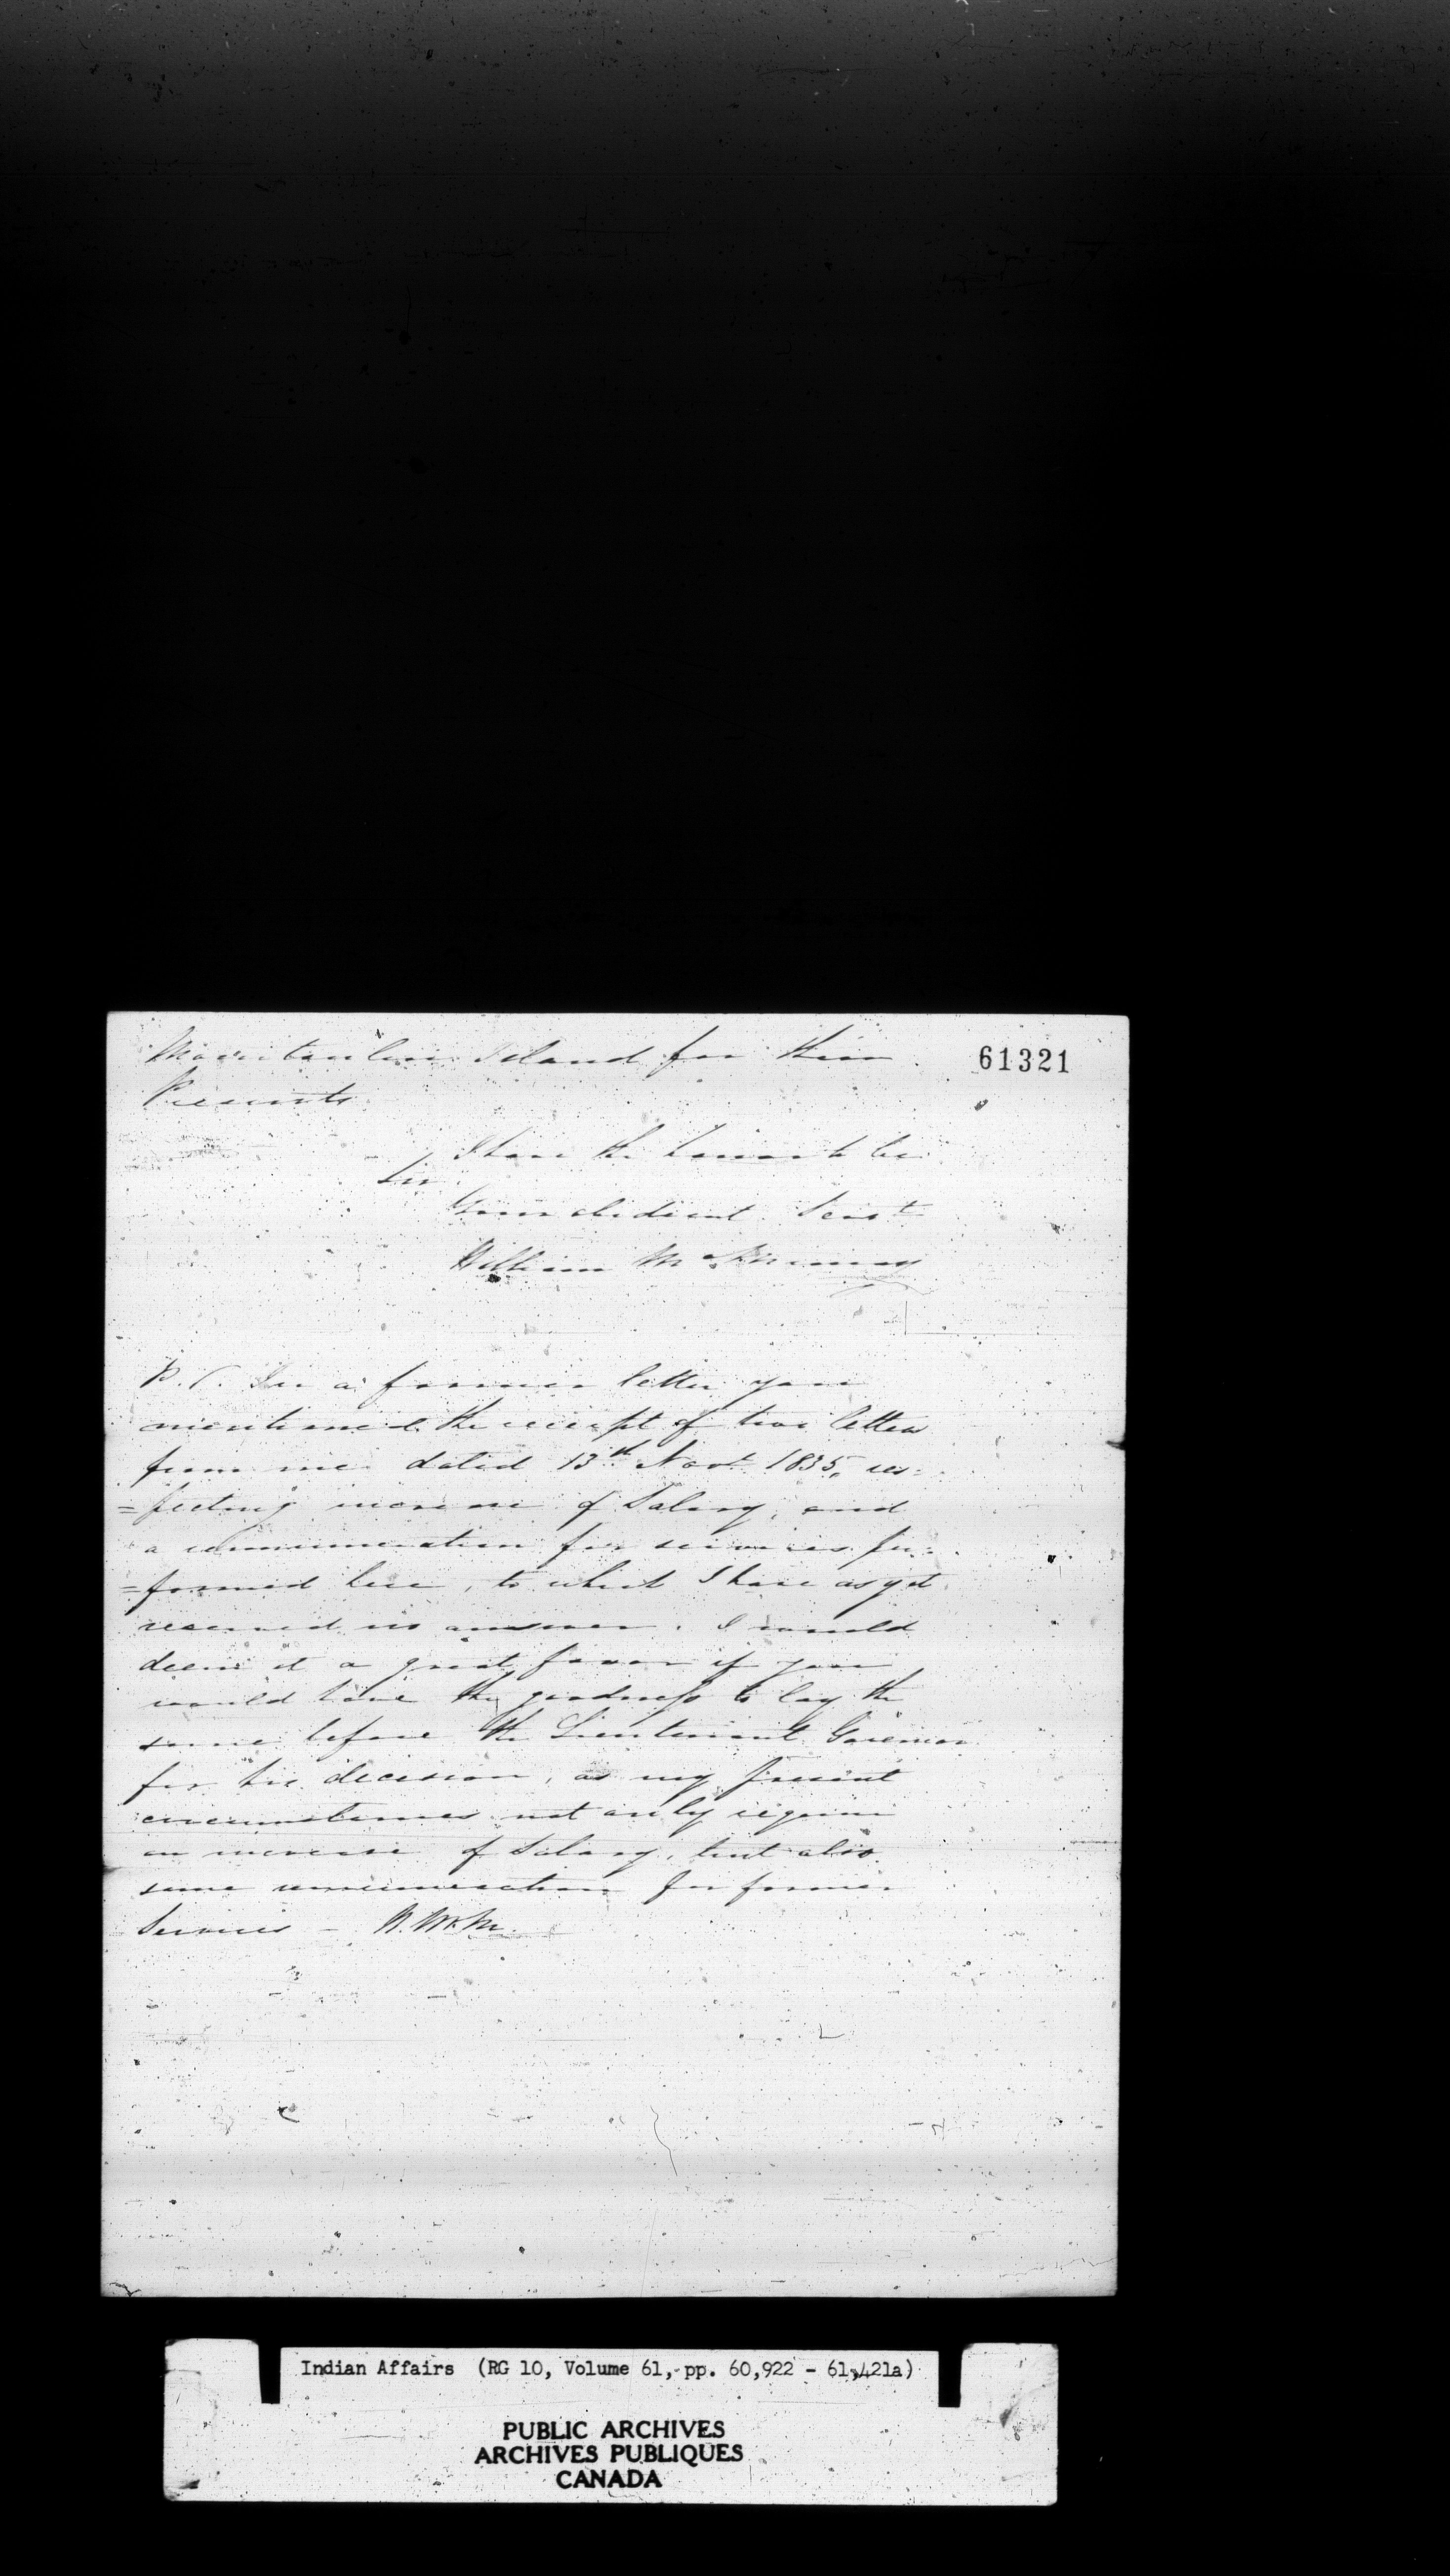 Manitoulin Island for their
61321
Presents
I have the honor to be
Sir
Your obedient Servt
William McMurray
P.S. In a former letter you
mentioned the receipt of two letters
from me dated 13th Novr 1835, res=
=pecting increase of Salary, and
a remuneration for services per=
=formed here, to which I have as yet
received no answer. I would
deem it a great favor if you
would have the goodness to lay the
same before the Lieutenant Governor
for his decision, as my present
circumstances not only require
an increase of Salary, but also
some remuneration for former
Services - W. McM.
Indian Affairs (RG 10, Volume 61, pp. 60,922 - 61,421a)
PUBLIC ARCHIVES
ARCHIVES PUBLIQUES
CANADA